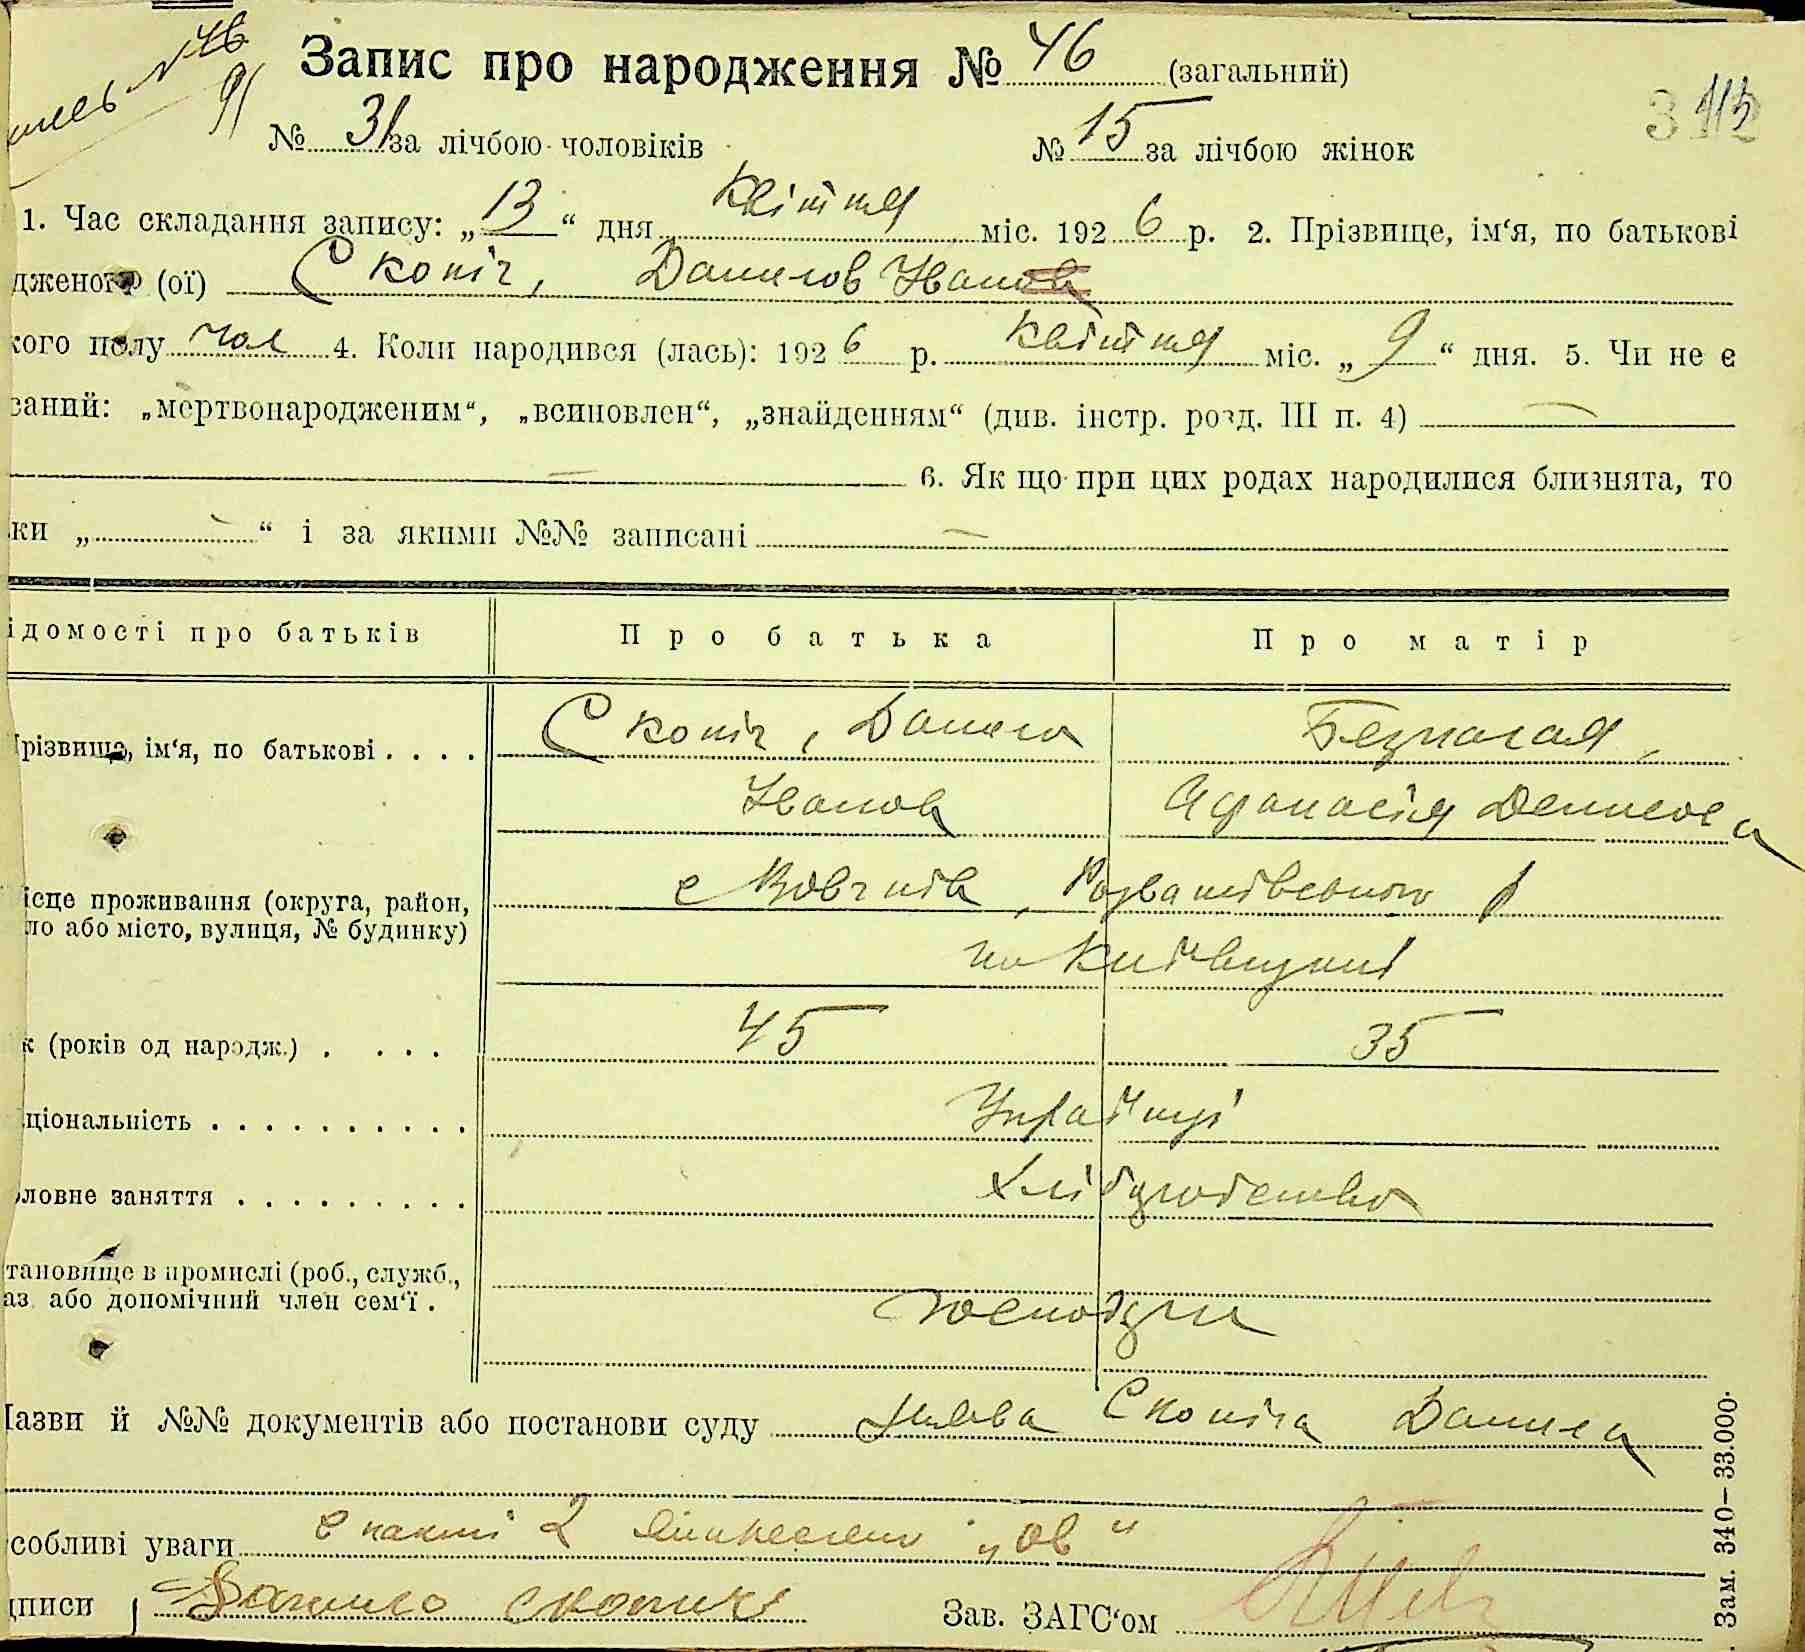 № 46
91
Запис про народження № 46 (загальний)
№ 31 за лічбою чоловіків № 15 за лічбою жінок
1. Час складання запису: „13“ дня квітня міс. 1926 р. 2. Прізвище, ім‘я, по батькові
дженого (ої) Скопіч, Данилов Іванов
кого полу чол 4. Коли народився (лась): 1926 р. квітня міс. „9“ дня. 5. Чи не є
заний: „мертвонародженим“, „всиновлен“, „знайденням“ (див. інстр. розд. III п. 4) —
— 6. Як що при цих родах народилися близнята, то
ки „—“ і за якими №№ записані —
ідомості про батьків Про батька Про матір
Прізвище, ім‘я, по батькові . . . . Скопіч, Данило Безпалая,
Іванов Афанасія Денисова
ісце проживання (округа, район, с Вовчків, Розважівського р
ло або місто, вулиця, № будинку)
на Київщині
к (років од народж.) . . . . 45 35
ціональність . . . . . . . . . . Українці
ловне заняття . . . . . . . . . Хліборобство
тановище в промислі (роб., служб.,
аз. або допомічний член сем‘ї . господари
Назви й №№ документів або постанови суду Заява Скопіча Данила
собливі уваги в пункті 2 закреслено „ов“
дписи Данило скопич Зав. ЗАГС‘ом
Зам. 340—33.000.